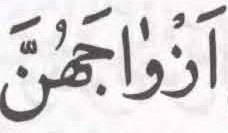 اَزْوٰاجَهُنَّ